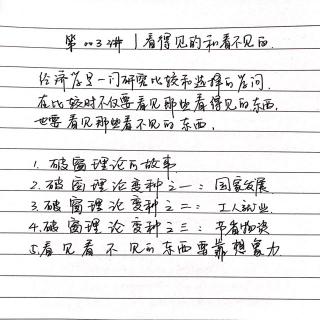 第003讲|看得见的和看不见的
经济学是一门研究比较和选择的学问.
在比较时不仅要看见那些看得见的东西,
也要看见那些看不见的东西.
1. 破窗理论的故事
2. 破窗理论变种之一：国家发展
3. 破窗理论变种之二：工人就业
4. 破窗理论变种之三：节省物资
5. 看见看不见的东西要靠想象力